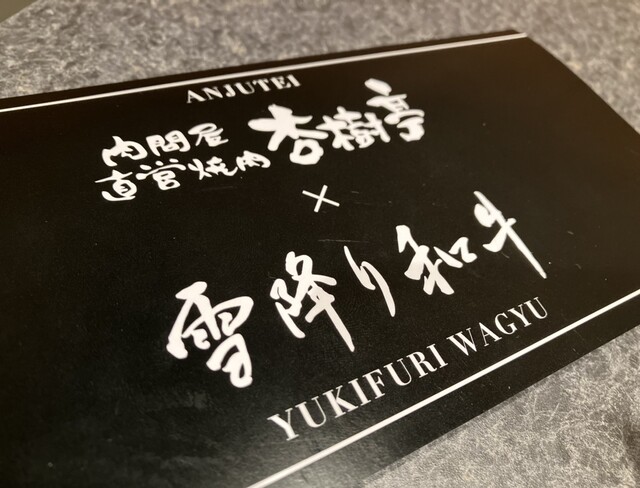 ANJUTEI
肉問屋
直営焼肉 杏樹亭
×
雪降り和牛
YUKIFURI WAGYU